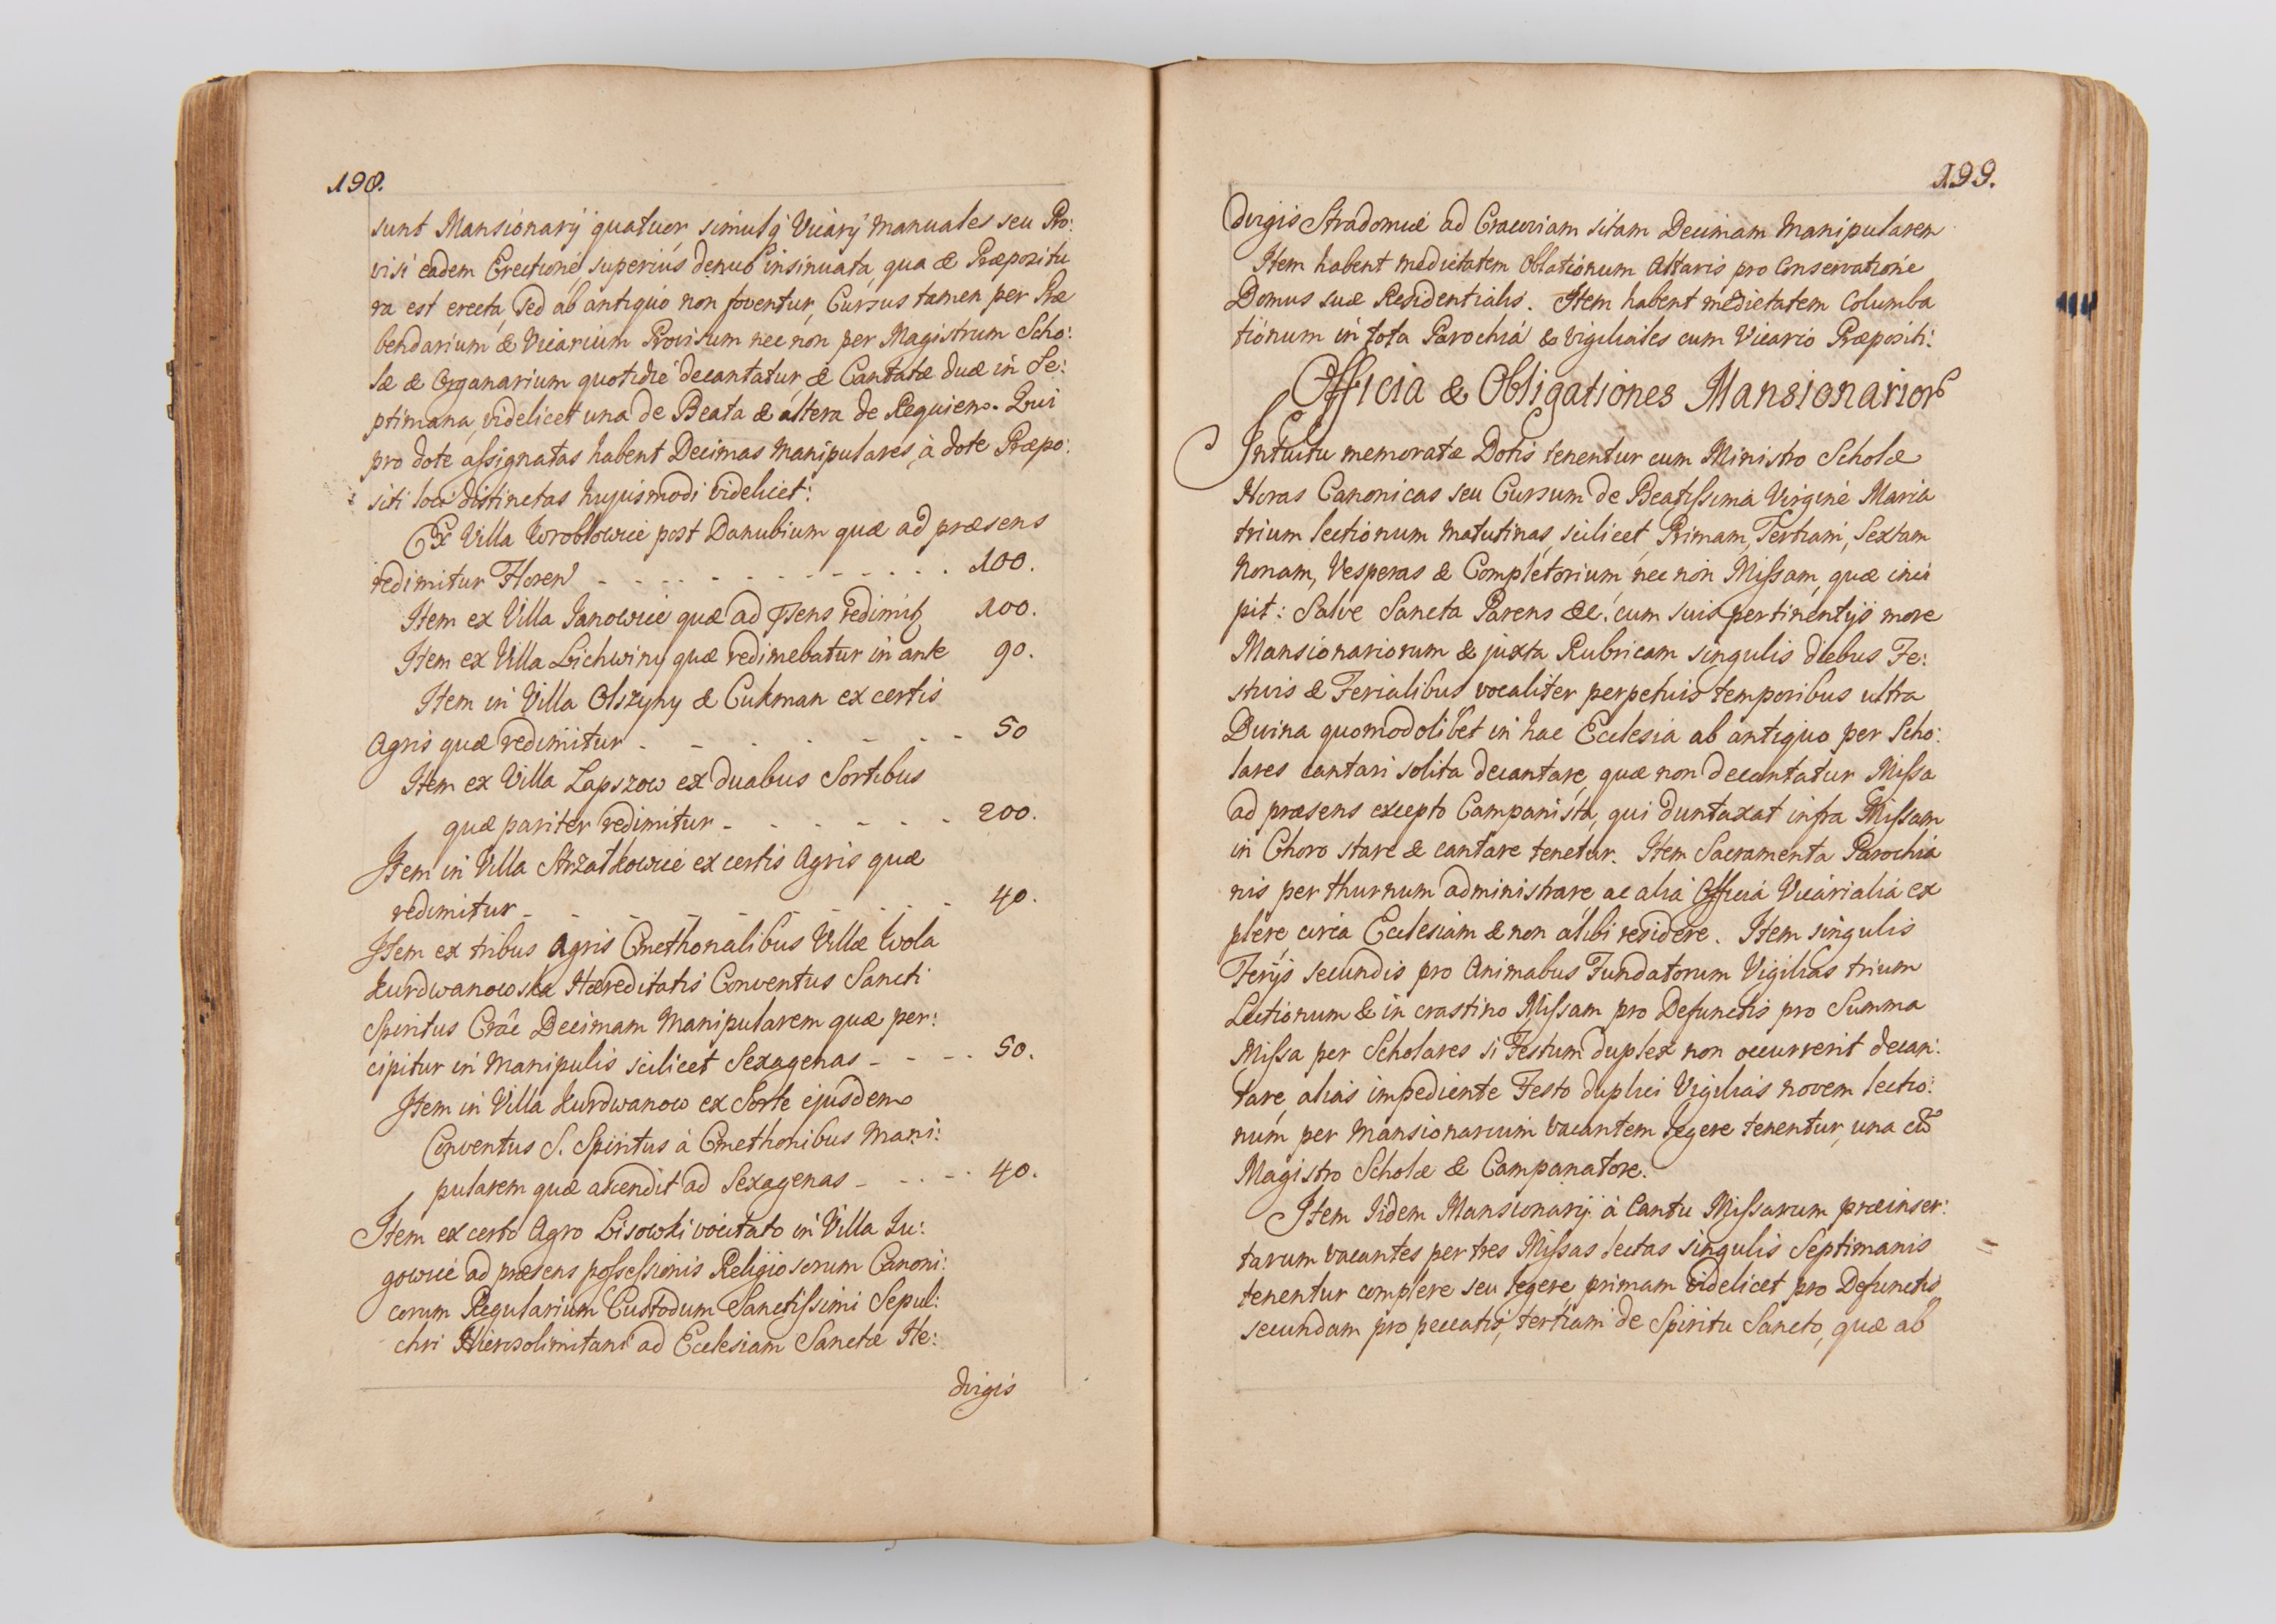 198.
sunt Mansionarÿ quatuor simulq Vicarÿ Manuales seu Pro:
visi eadem Erectione superius denuo insinuata, qua & Præpositu
ra est erecta, sed ab antiquo non foventur, Cursus tamen per Præ
bendarium & Vicarium Provisum nec non per Magistrum Scho:
læ & Organarium quotidie decantatur, & Cantatæ duæ in Se:
ptimana, videlicet una de Beata & altera de Requiem. Qui
pro dote assignatas habent Decimas Manipulares, à dote Præpo:
siti loci distinctas hujusmodi videlicet:
Ex Villa Wroblowice post Danubium quæ ad præsens
redimitur Floren - - - - - - - - - - - - 100.
Item ex Villa Janowice quæ ad psens redimit 100.
Item ex Villa Lichwiny quæ redimebatur in ante 90.
Item in Villa Olszyny & Cukman ex certis
Agris quæ redimitur - - - - - - - 50
Item ex Villa Lapszow ex duabus Sortibus
quæ pariter redimitur - - - - - - 200.
Item in Villa Strzałkowice ex certis Agris quæ
redimitur - - - - - - - - - 40.
Item ex tribus Agris Cmethonalibus Villæ Wola
Kurdwanowska Hæreditatis Conventus Sancti
Spiritus Crac̃ Decimam Manipularem quæ per:
cipitur in Manipulis scilicet Sexagenas - - - - 50.
Item in Villa Kurdwanow ex Sorte ejusdem
Conventus S. Spiritus à Cmethonibus Mani:
pularem quæ ascendit ad Sexagenas - - - - 40.
Item ex certo Agro Lisowski vocitato in Villa Lu:
gowice ad præsens possessionis Religiosorum Canoni:
corum Regularium Custodum Sanctissimi Sepul:
chri Hierosolimitani ad Ecclesiam Sanctæ He:
dvigis
199.
dvigis Stradomiæ ad Cracoviam sitam Decimam Manipularem
Item habent medietatem Oblationum Altaris pro Conservatione
Domus suæ Residentialis. Item habent medietatem Columba
tionum in tota Parochia & Vigiliales cum Vicario Præpositi:
Officia & Obligationes Mansionarior
Intuitu memoratæ Dotis tenentur cum Ministro Scholæ
Horas Canonicas seu Cursum de Beatissima Virgine Maria
trium lectionum matutinas, scilicet, Primam, Tertiam, Sextam
Nonam, Vesperas & Completorium nec non Missam, quæ inci
pit: Salve Sancta Parens &c. cum suis pertinentÿs more
Mansionariorum & juxta Rubricam singulis diebus Fe:
stivis & Ferialibus vocaliter perpetuis temporibus ultra
Divina quomodolibet in hac Ecclesia ab antiquo per Scho:
lares cantari solita decantare, quæ non decantatur Missa
ad præsens excepto Campanista, qui duntaxat infra Missam
in Choro stare & cantare tenetur. Item Sacramenta Parochia
nis per thurnum administrare ac alia Officia Vicarialia ex
plere circa Ecclesiam & non alibi residere. Item singulis
Ferÿs secundis pro Animabus Fundatorum Vigilias trium
Lectionum & in crastino Missam pro Defunctis pro Summa
Missa per Scholares si Festum duplex non occurrerit decan:
tare, alias impediente Festo duplici Vigilias novem lectio:
num per Mansionarium vacantem legere tenentur, una cũ
Magistro Scholæ & Campanatore.
Item Iidem Mansionarÿ à Cantu Missarum præinser:
tarum vacantes per tres Missas lectas singulis Septimanis
tenentur complere seu legere, primam videlicet pro Defunctis,
secundam pro peccatis, tertiam de Spiritu Sancto, quæ ab